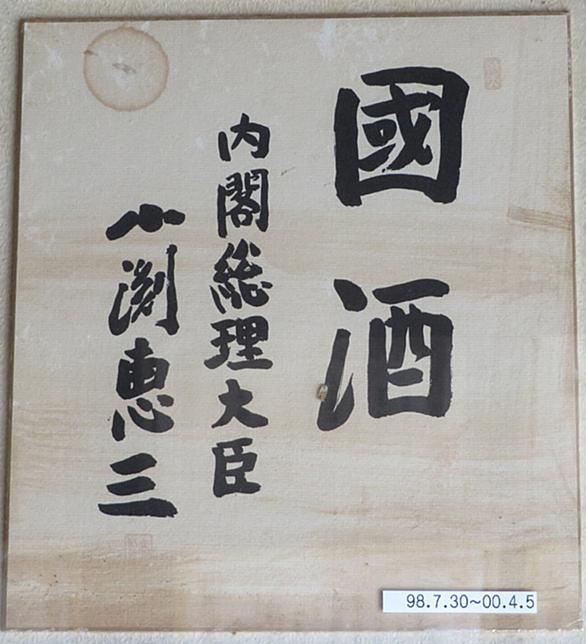 國酒
内閣総理大臣
小渕恵三
98.7.30~00.4.5